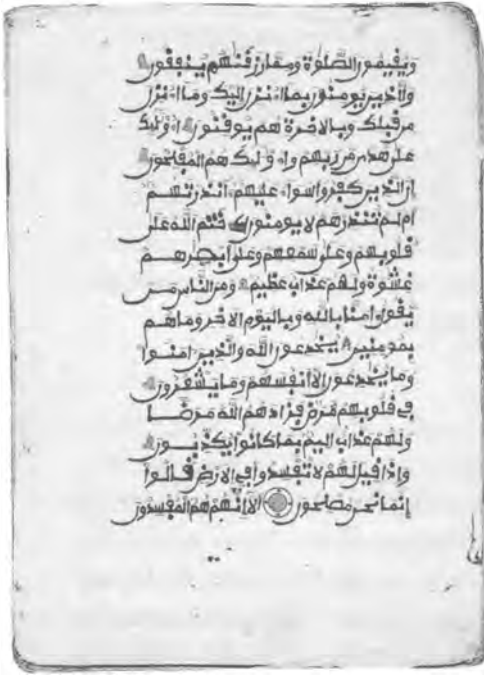 ويقيمون الصلوة ومما رزقنهم ينفقون
والذين يومنون بما أنزل إليك وما أنزل
من قبلك وبالاخرة هم يوقنون أولئك
على هدى من ربهم وأولئك هم المفلحون
إن الذين كفروا سواء عليهم ءأنذرتهم
أم لم تنذرهم لا يومنون ختم الله على
قلوبهم وعلى سمعهم وعلى أبصرهم
غشوة ولهم عذاب عظيم ومن الناس من
يقول ءامنا بالله وباليوم الاخر وما هم
بمومنين يخدعون الله والذين ءامنوا
وما يخدعون إلا أنفسهم وما يشعرون
في قلوبهم مرض فزادهم الله مرضا
ولهم عذاب أليم بما كانوا يكذبون
وإذا قيل لهم لا تفسدوا في الارض قالوا
إنما نحن مصلحون ألا إنهم هم المفسدون